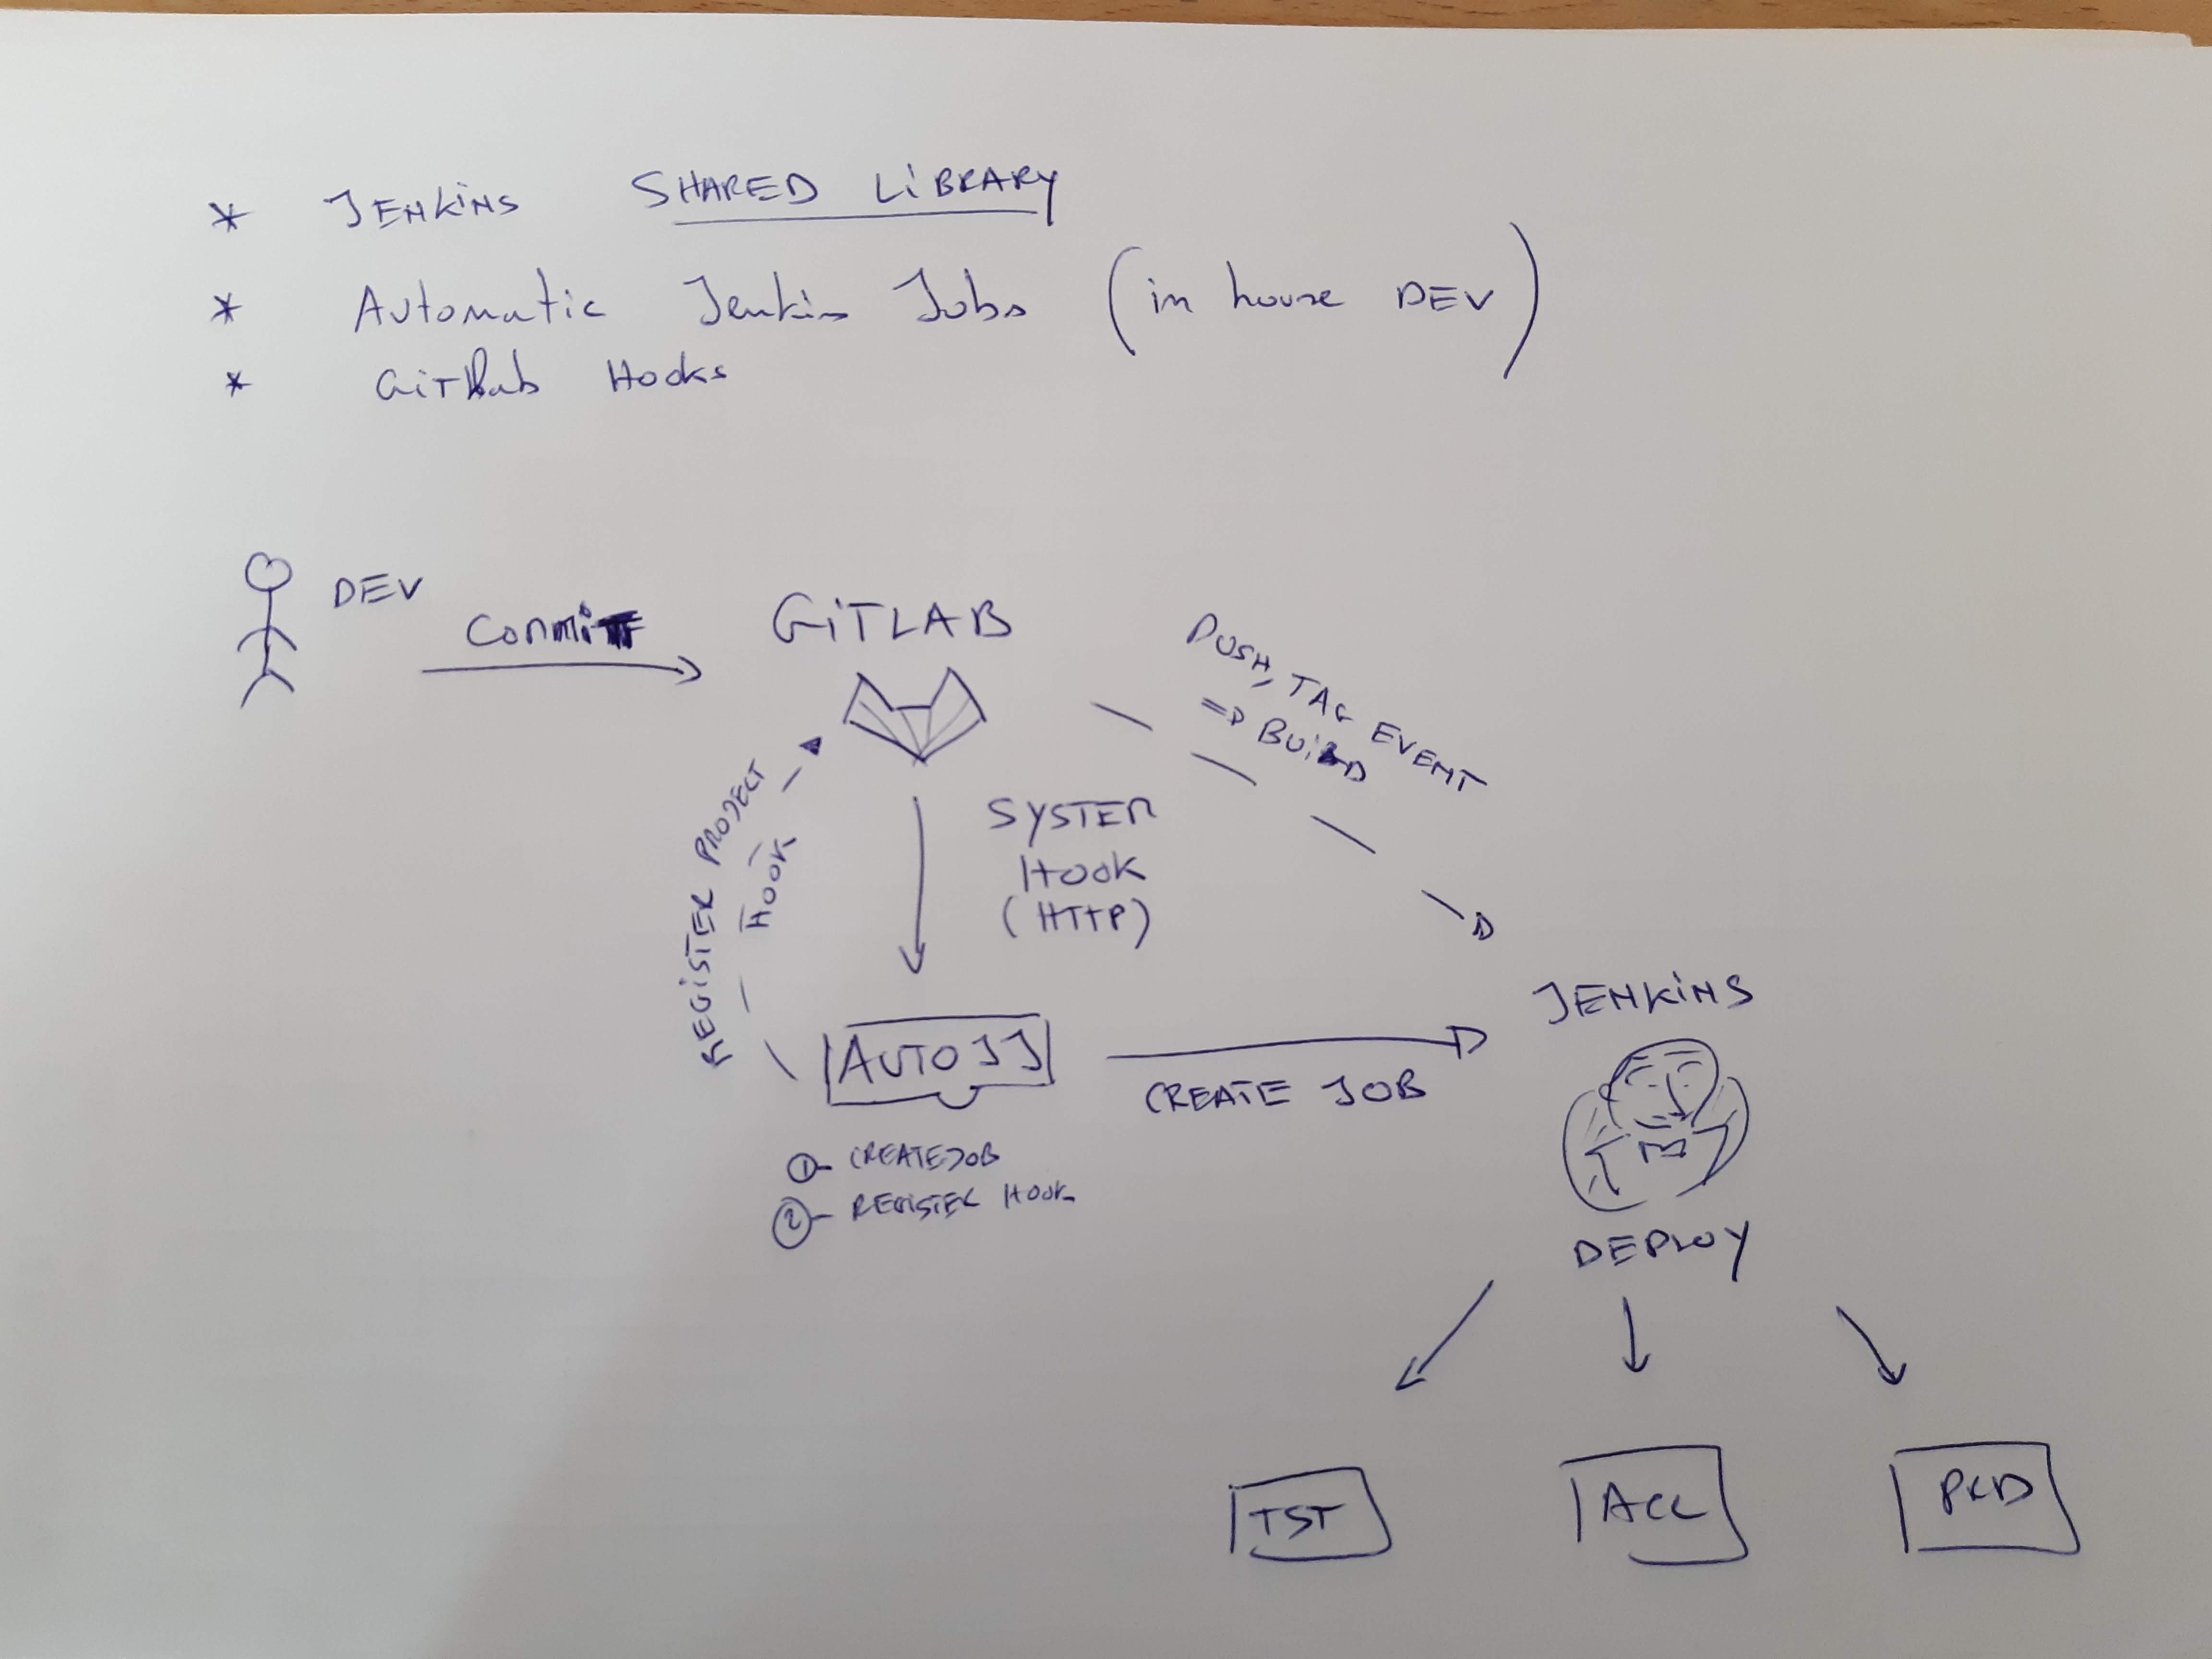 * JENKINS SHARED LIBRARY
* Automatic Jenkins Jobs (in house DEV)
* GitLab Hooks
DEV
COMMIT
GITLAB
PUSH, TAG EVENT
=> BUILD
REGISTER PROJECT
HOOK
SYSTEM
HOOK
(HTTP)
AUTOJJ
CREATE JOB
JENKINS
1- CREATE JOB
2- REGISTER HOOK
DEPLOY
TST
ACC
PRD